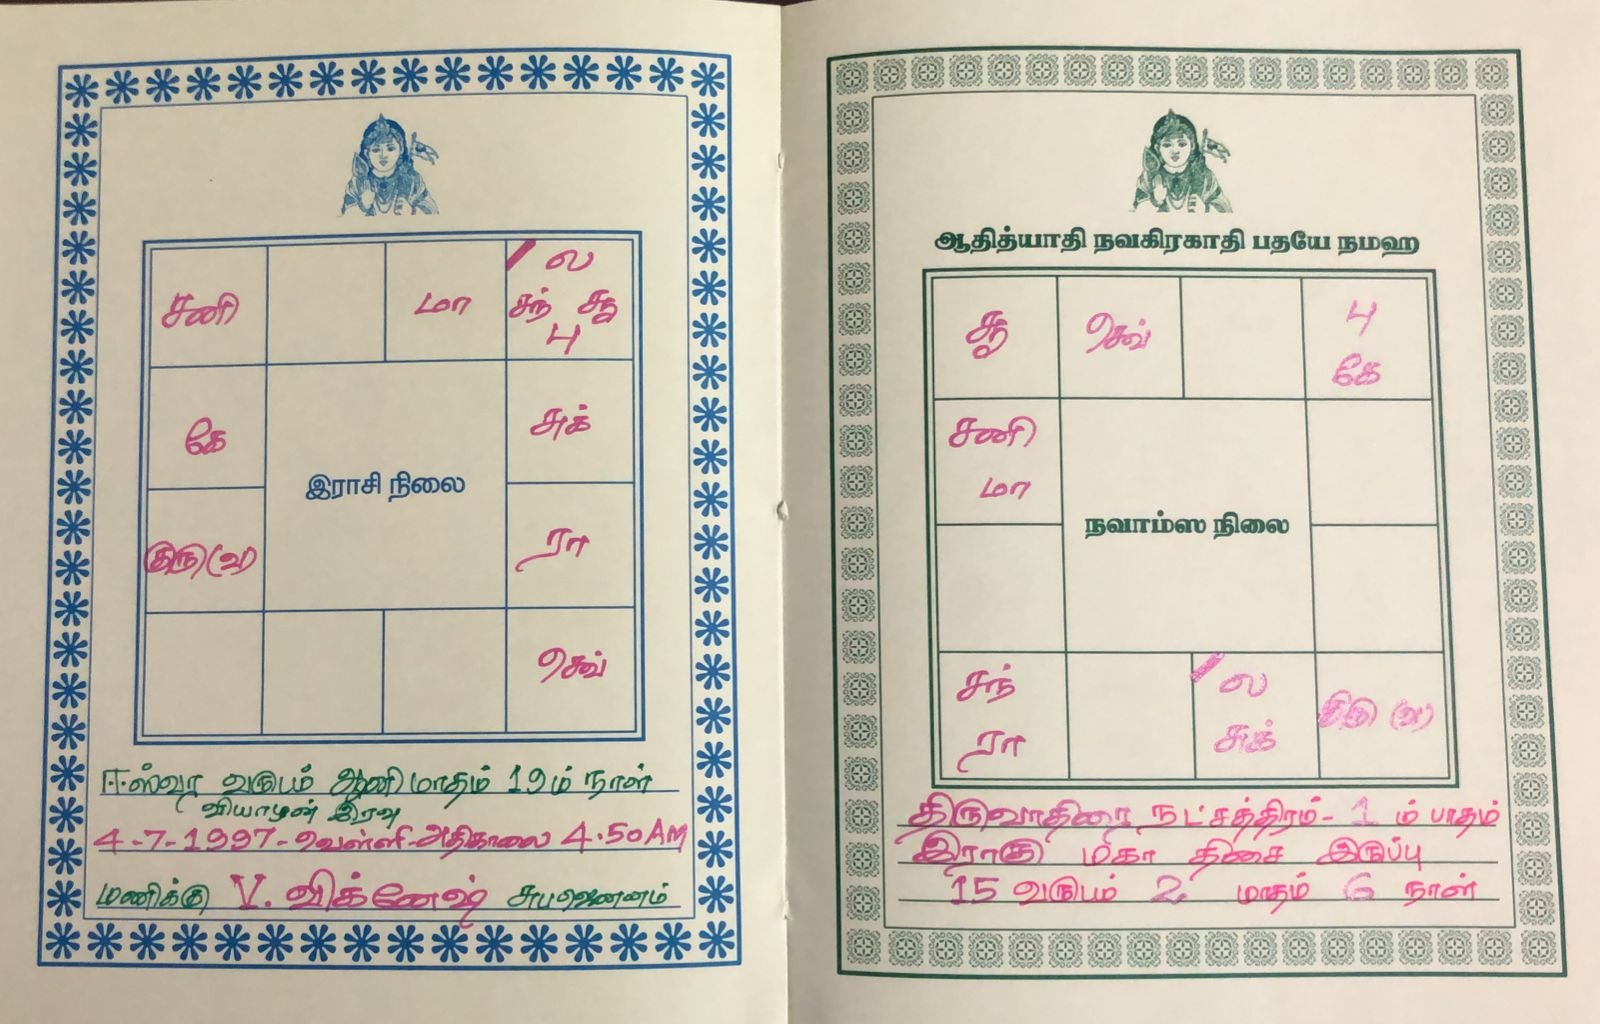 ல
சனி மா சந் சூ
பு
கே சுக்
இராசி நிலை
குரு (வ) ரா
செவ்
ஈஸ்வர வருடம் ஆனி மாதம் 19ம் நாள்
வியாழன் இரவு
4-7-1997-வெள்ளி-அதிகாலை 4.50 AM
மணிக்கு V. விக்னேஷ் சுபஜெனனம்
ஆதித்யாதி நவகிரகாதி பதயே நமஹ
சூ செவ் பு
கே
சனி
மா
நவாம்ஸ நிலை
சந் ல குரு (வ)
ரா சுக்
திருவாதிரை நட்சத்திரம் - 1 ம் பாதம்
இராகு மகா திசை இருப்பு
15 வருடம் 2 மாதம் 6 நாள்